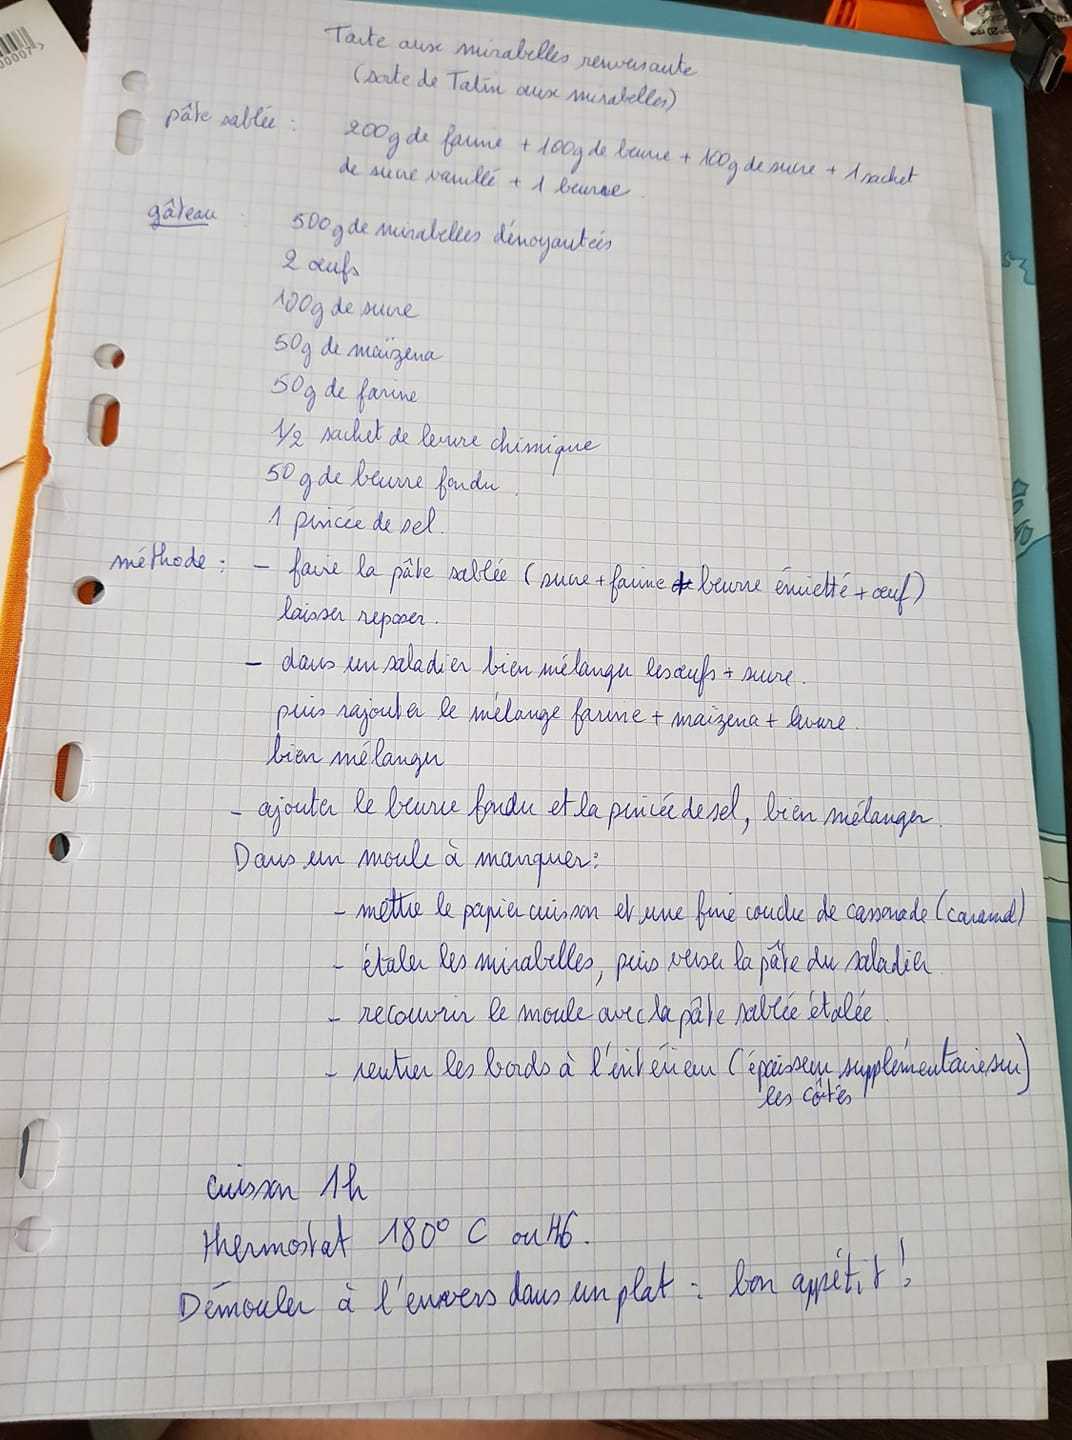 Tarte aux mirabelles renversante
(sorte de Tatin aux mirabelles)
pâte sablée : 200g de farine + 100g de beurre + 100g de sucre + 1 sachet
de sucre vanillé + 1 beurre.
gâteau : 500g de mirabelles dénoyautées
2 œufs
100g de sucre
50g de maïzena
50g de farine
1/2 sachet de levure chimique
50g de beurre fondu.
1 pincée de sel.
méthode : - faire la pâte sablée (sucre + farine + beurre émietté + œuf)
laisser reposer.
- dans un saladier bien mélanger les œufs + sucre.
puis rajouter le mélange farine + maïzena + levure.
bien mélanger
- ajouter le beurre fondu et la pincée de sel, bien mélanger.
Dans un moule à manquer :
- mettre le papier cuisson et une fine couche de cassonade (caramel)
- étaler les mirabelles, puis verser la pâte du saladier
- recouvrir le moule avec la pâte sablée étalée.
- rentrer les bords à l'intérieur (épaisseur supplémentaire sur
les côtés)
cuisson 1h
thermostat 180° C ou th6.
Démouler à l'envers dans un plat : bon appétit !